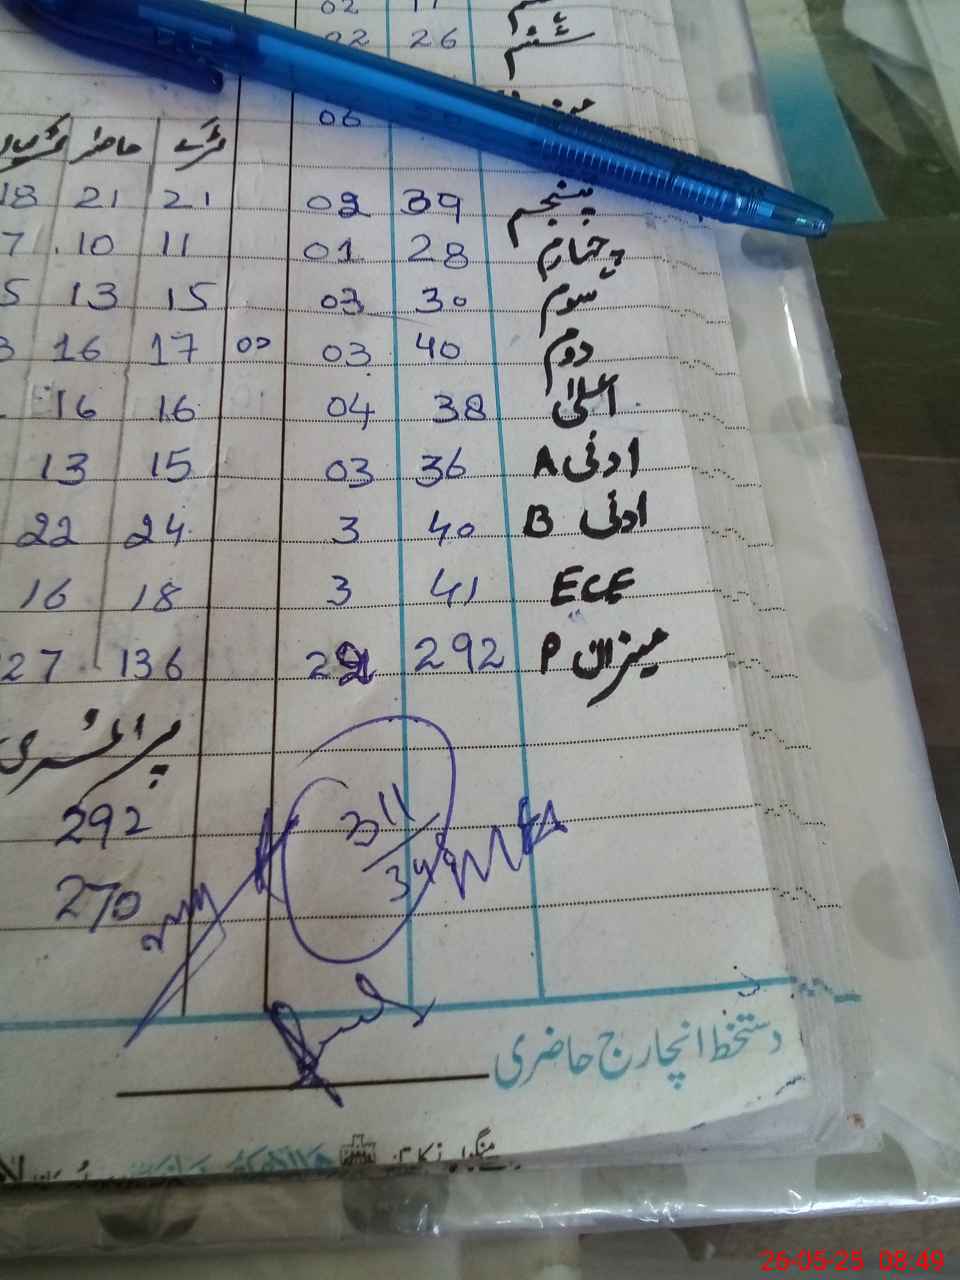 02 17
ششم 26 02
06
گرلز حاضر
پنجم 39 02 21 21 18
چہارم 28 01 11 10 7
سوم 30 03 15 13 5
دوم 40 03 00 17 16 3
اعلیٰ 38 04 16 16
ادنیٰ A 36 03 15 13
ادنیٰ B 40 3 24 22
ECE 41 3 18 16
میزان P 292 22 136 27
پرائمری
292
311
349
270
دستخط انچارج حاضری
26-05-25 08:49